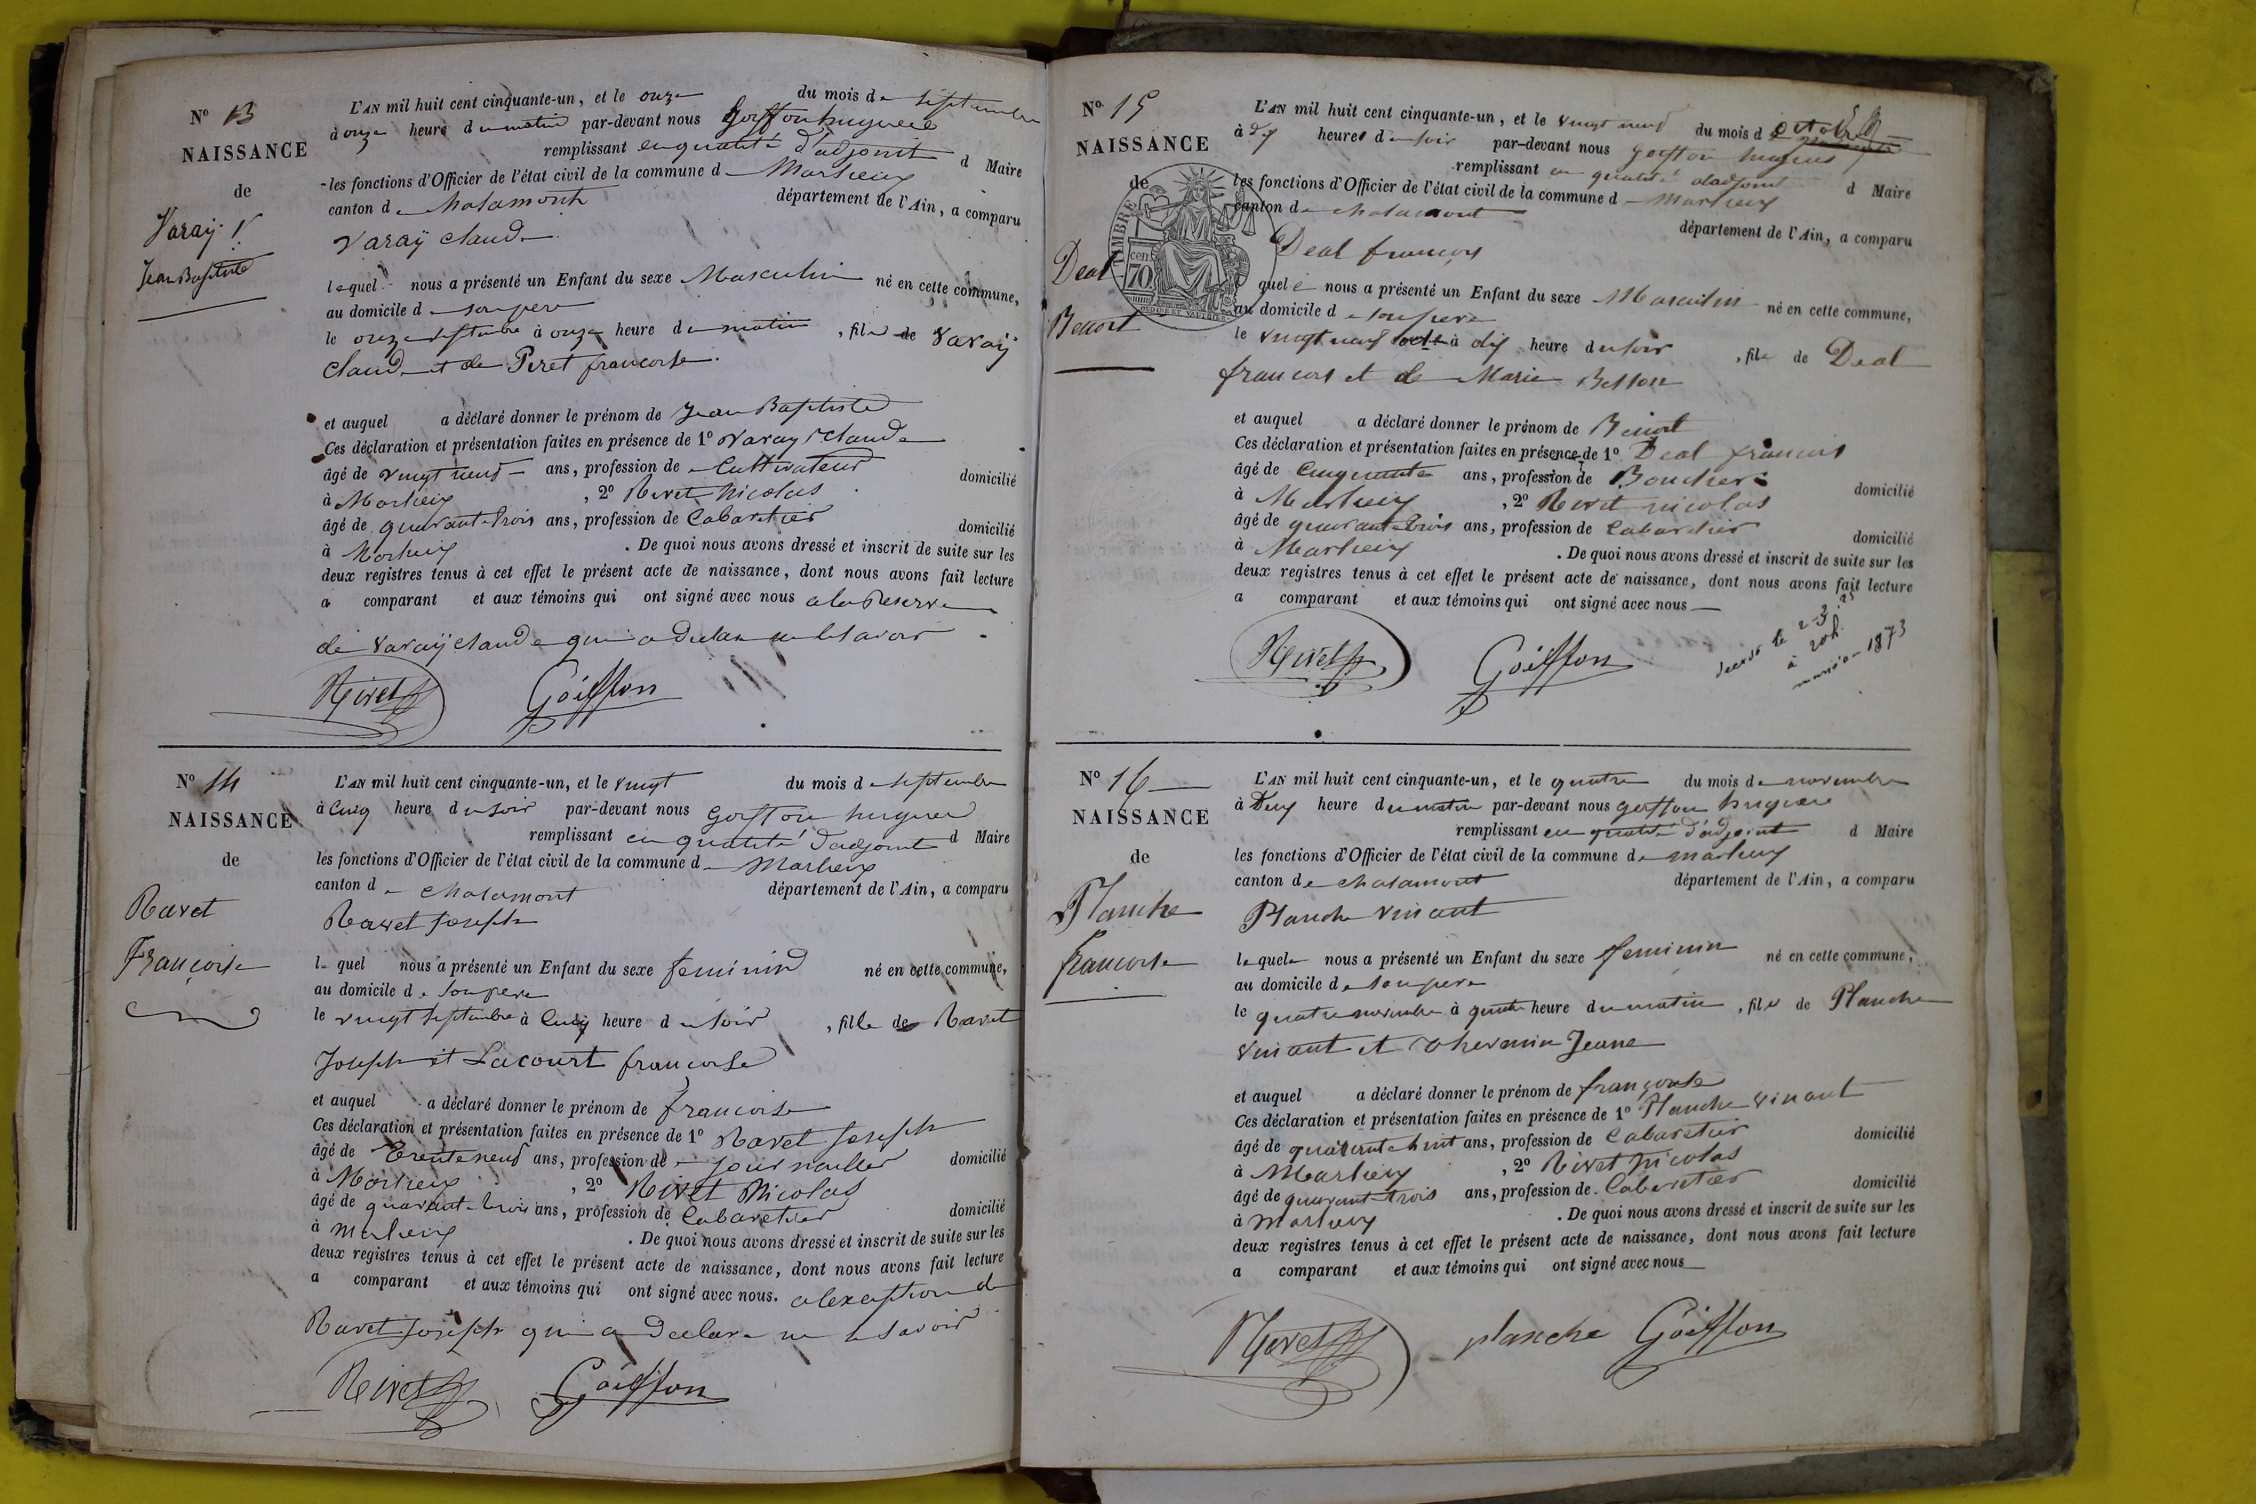 N° 13
NAISSANCE
de
Varaÿ
Jean Baptiste
L'AN mil huit cent cinquante-un, et le onze du mois de septembre
à onze heure du matin par-devant nous Goiffon hugues
remplissant en qualité d'adjoint d Maire
les fonctions d'Officier de l'état civil de la commune de Marlieux
canton de Chalamont département de l'Ain, a comparu
Varaÿ Claude
lequel nous a présenté un Enfant du sexe Masculin né en cette commune,
au domicile de son pere
le onze septembre à onze heure du matin, fils de Varaÿ
Claude et de Peret francoise
et auquel a déclaré donner le prénom de Jean Baptiste
Ces déclaration et présentation faites en présence de 1° Varay Claude
âgé de vingt neuf ans, profession de Cultivateur domicilié
à Marlieux, 2° Rivet Nicolas
âgé de quarante trois ans, profession de Cabaretier domicilié
à Marlieux. De quoi nous avons dressé et inscrit de suite sur les
deux registres tenus à cet effet le présent acte de naissance, dont nous avons fait lecture
a comparant et aux témoins qui ont signé avec nous a la Reserve
de Varaÿ Claude qui a declare ne le savoir
Rivet Goiffon
N° 14
NAISSANCE
de
Ravet
Françoise
L'AN mil huit cent cinquante-un, et le vingt du mois de septembre
à Cinq heure du soir par-devant nous Goiffon hugues
remplissant en qualité d'adjoint d Maire
les fonctions d'Officier de l'état civil de la commune de Marlieux
canton de Chalamont département de l'Ain, a comparu
Ravet Joseph
le quel nous a présenté un Enfant du sexe feminin né en cette commune,
au domicile de son pere
le vingt septembre à Cinq heure du soir, fille de Ravet
Joseph et Lacourt francoise
et auquel a déclaré donner le prénom de francoise
Ces déclaration et présentation faites en présence de 1° Ravet Joseph
âgé de Trente neuf ans, profession de journallier domicilié
à Marlieux, 2° Rivet Nicolas
âgé de quarante trois ans, profession de Cabaretier domicilié
à Marlieux. De quoi nous avons dressé et inscrit de suite sur les
deux registres tenus à cet effet le présent acte de naissance, dont nous avons fait lecture
a comparant et aux témoins qui ont signé avec nous. a lexception de
Ravet Joseph qui a declare ne le savoir
Rivet Goiffon
N° 15
NAISSANCE
de
Deal
Benoit
TIMBRE
70 cen
L'AN mil huit cent cinquante-un, et le vingt neuf du mois d octobre
à dix heures du soir par-devant nous goiffon hugues
remplissant en qualité dadjoint d Maire
les fonctions d'Officier de l'état civil de la commune de Marlieux
canton de chalamont département de l'Ain, a comparu
Deal françois
quel nous a présenté un Enfant du sexe Masculin né en cette commune,
au domicile de son pere
le vingt neuf octe à dix heure du soir, fils de Deal
francois et de Marie Besson
et auquel a déclaré donner le prénom de Benoit
Ces déclaration et présentation faites en présence de 1° Deal francois
âgé de Cinquante ans, profession de Boucher domicilié
à Marlieux, 2° Rivet nicolas
âgé de quarante trois ans, profession de Cabaretier domicilié
à Marlieux. De quoi nous avons dressé et inscrit de suite sur les
deux registres tenus à cet effet le présent acte de naissance, dont nous avons fait lecture
a comparant et aux témoins qui ont signé avec nous
Rivet Goiffon
1873
N° 16
NAISSANCE
de
Planche
francoise
L'AN mil huit cent cinquante-un, et le quatre du mois de novembre
à Deux heure du matin par-devant nous goiffon hugues
remplissant en qualité d'adjoint d Maire
les fonctions d'Officier de l'état civil de la commune de marlieux
canton de chalamont département de l'Ain, a comparu
Planche vincant
le quel nous a présenté un Enfant du sexe feminin né en cette commune,
au domicile de son pere
le quatre novembre à quatre heure du matin, file de Planche
vincant et thevenin Jeane
et auquel a déclaré donner le prénom de françoise
Ces déclaration et présentation faites en présence de 1° Planche vincant
âgé de quarante huit ans, profession de Cabaretier domicilié
à Marlieux, 2° Rivet Nicolas
âgé de quarante trois ans, profession de Cabaretier domicilié
à marlieux. De quoi nous avons dressé et inscrit de suite sur les
deux registres tenus à cet effet le présent acte de naissance, dont nous avons fait lecture
a comparant et aux témoins qui ont signé avec nous
Rivet planche Goiffon